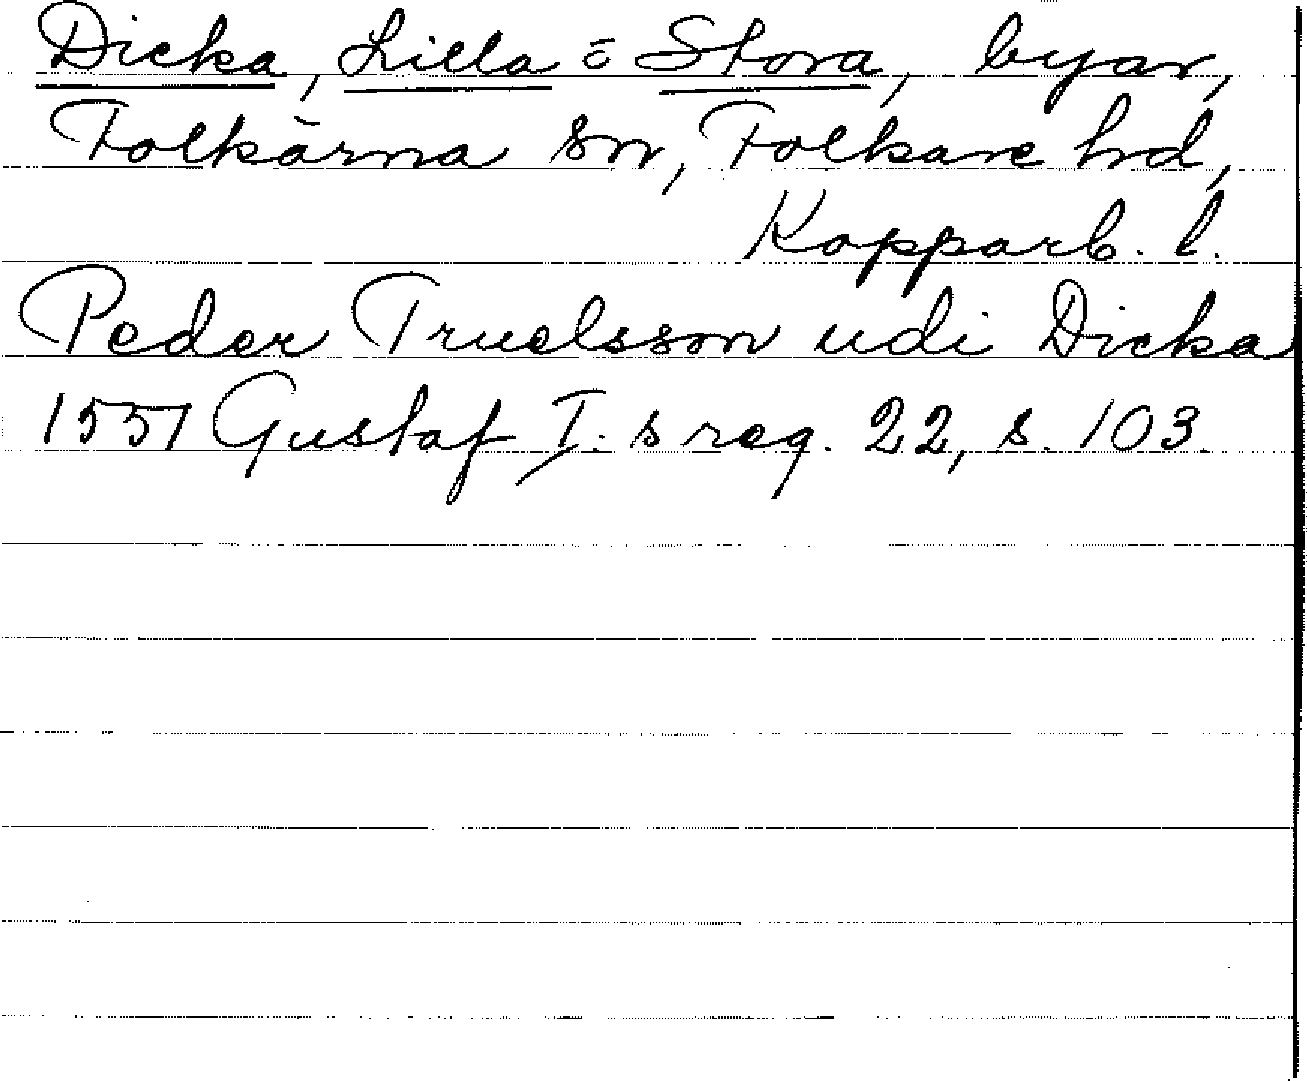 Dicka, Lilla o Stora, byar,
Folkärna sn, Folkare hd,
Kopparb. l.
Peder Truelsson udi Dicka
1551 Gustaf I.s reg. 22, s. 103.